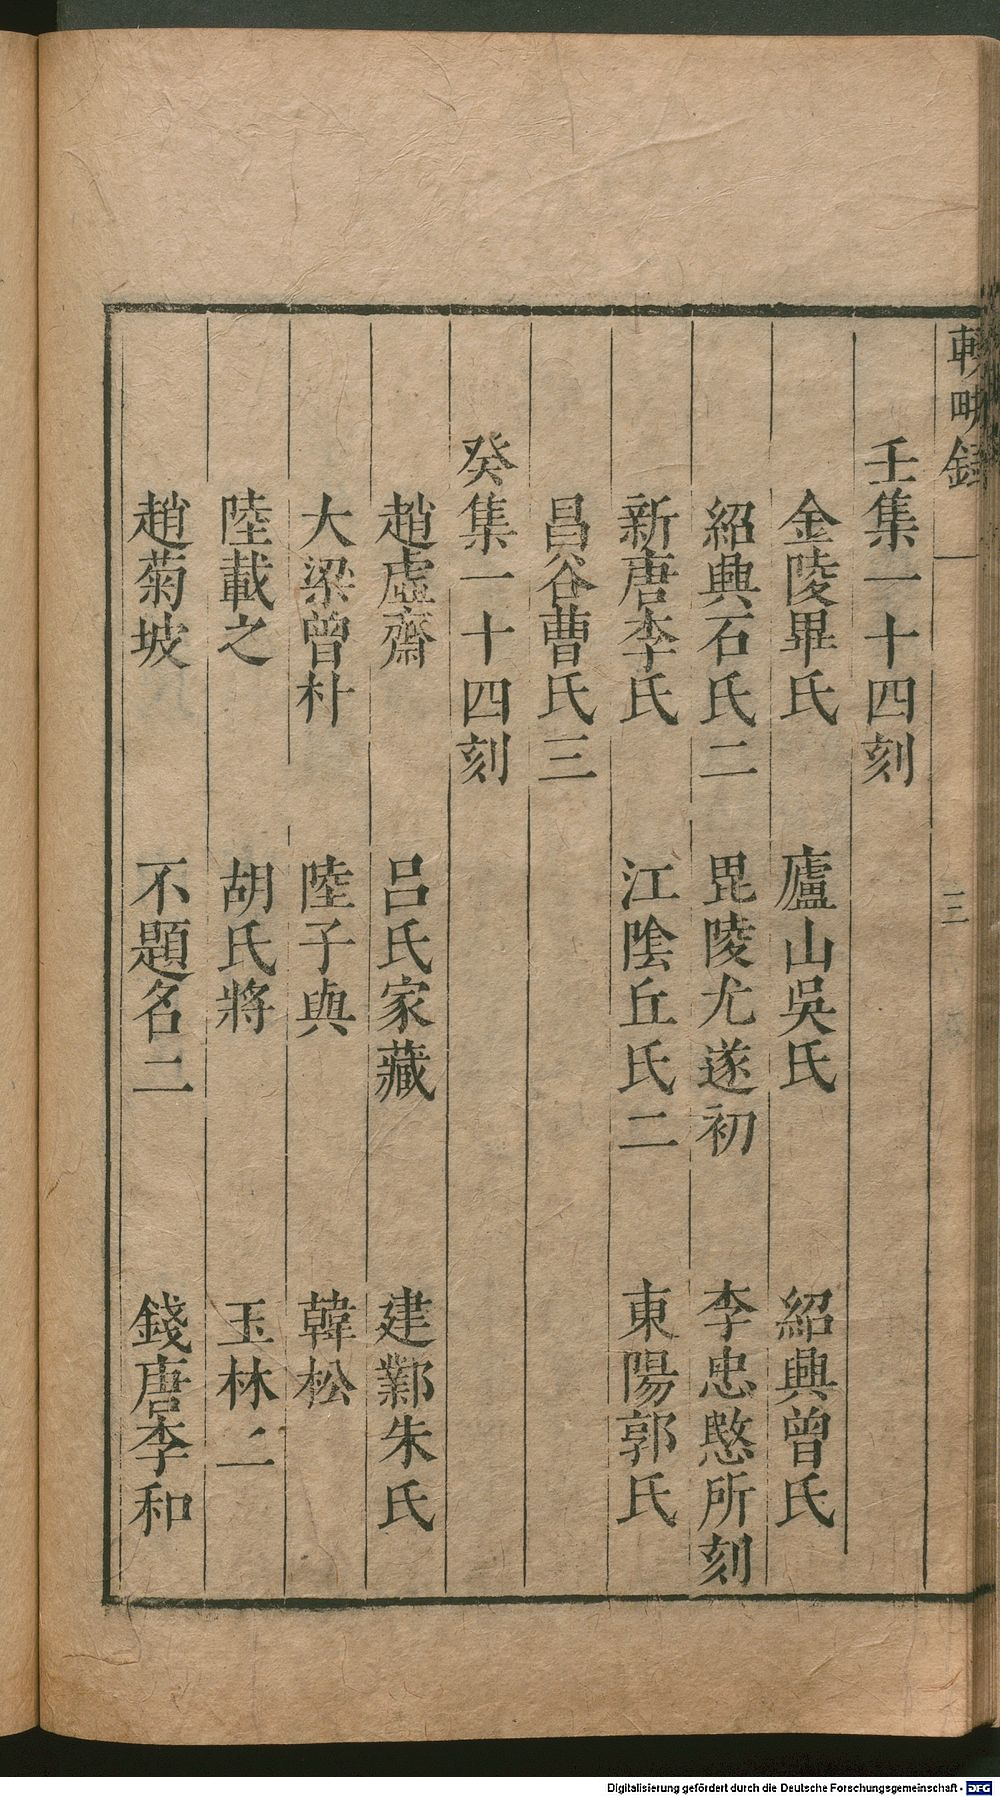 輟畊錄
三
壬集一十四刻
金陵畢氏 廬山吳氏 紹興曾氏
紹興石氏二 毘陵尤遂初 李忠愍所刻
新唐李氏 江陰丘氏二 東陽郭氏
昌谷曹氏三
癸集一十四刻
趙虛齋 呂氏家藏 建鄴朱氏
大梁曾朴 陸子與 韓松
陸載之 胡氏將 玉林二
趙菊坡 不題名二 錢唐李和
Digitalisierung gefördert durch die Deutsche Forschungsgemeinschaft - DFG